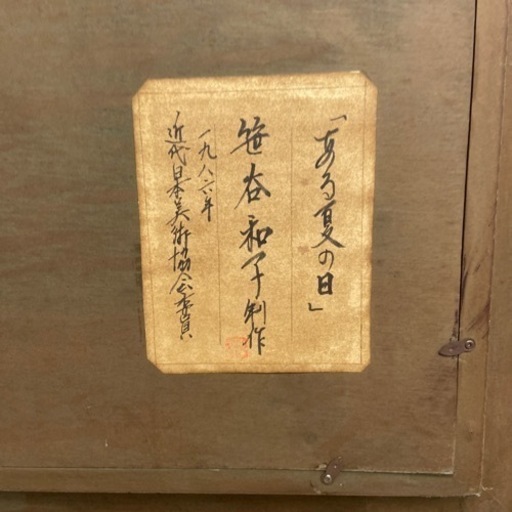 「ある夏の日」
笹谷和子制作
一九八六年
近代日本美術協会委員